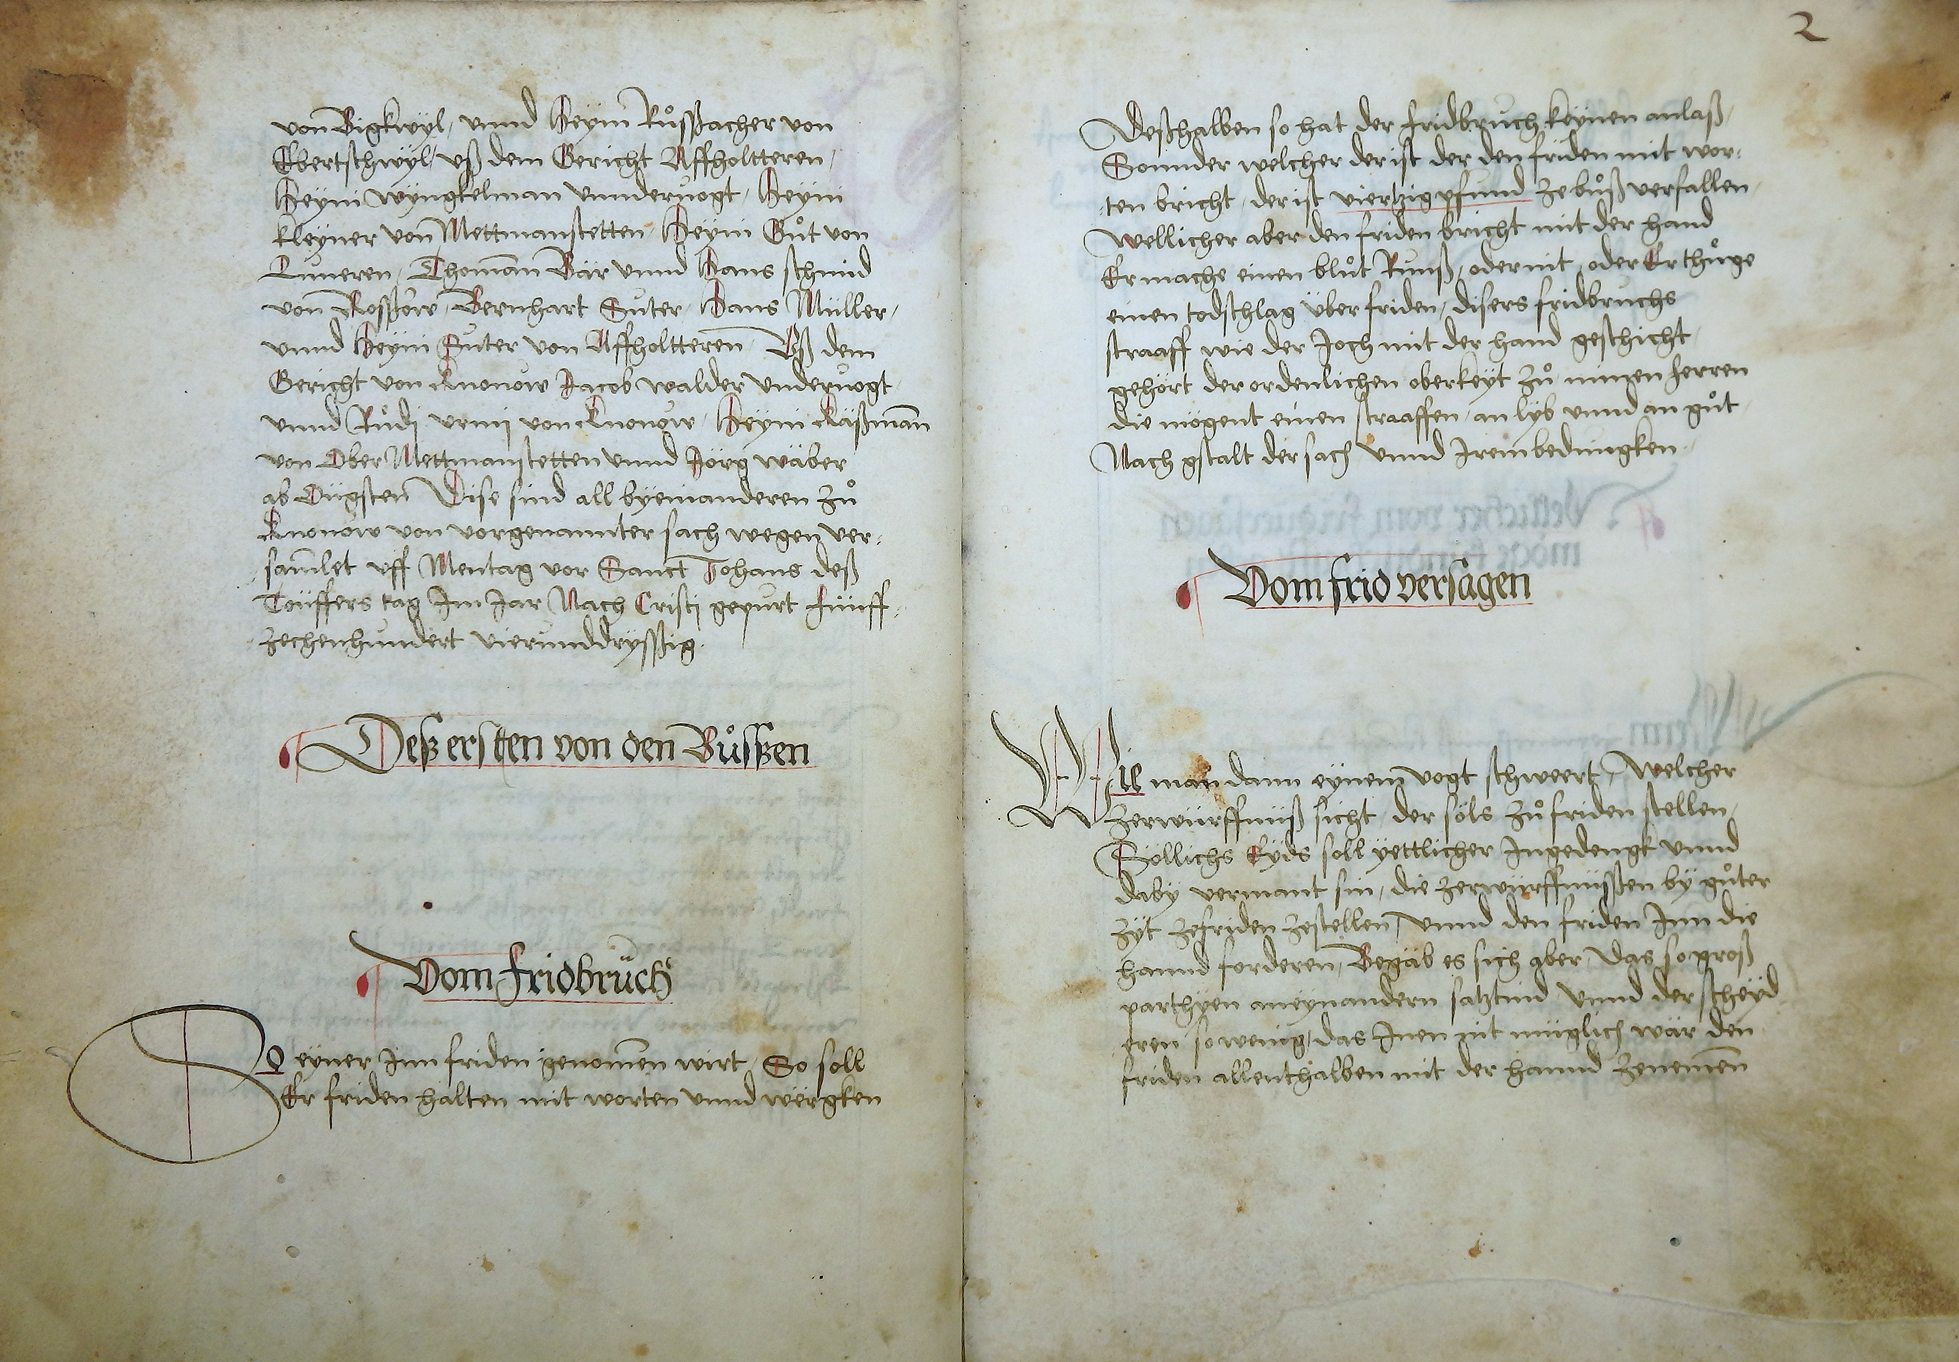 von Bigkwyl, vnnd Heyni Růsßacher von
Ebertschwyl, vß dem Gericht Affholtteren,
Heyni wyngkelman vnndervogt, Heyni
kleyner von Mettmanstetten, Heyni Gůt von
Lunneren, Thoman Bär vnnd Hans schmid
von Rossow, Bernhart Suter, Hans Müller,
vnnd Heyni Suter von Affholtteren Vß dem
Gericht von Knonow Jacob walder vndervogt
vnnd Růdi vrmi von Knonow, Heyni Käßman
von Ober Mettmanstetten vnnd Jörg wäber
ab Dügsten Dise sind all byeinanderen zů
Knonow von vorgenannter sach wegen ver-
samlet vff Mentag vor Sanct Johans deß
Töuffers tag Im Jar Nach Cristi gepurt fünff-
zechenhundert vierunddrysßig.
Deß ersten von den Bůssen
Vom fridbruch
So eyner Inn friden genomen wirt So soll
Er friden halten mit worten vnnd wergken
2
Deßhalben so hat der fridbruch keynen anlaß,
Sonnder welcher der ist der den friden mit wor-
ten bricht, der ist viertzig pfund ze bůß verfallen,
Wellicher aber den friden bricht mit der hand
Er mache einen blůt Runß, oder nit, oder Er thüge
einen todschlag über friden, disers fridbruchs
straaff wie der Joch mit der hand geschicht,
gehört der ordenlichen oberkeyt zů minen herren
die mögent einen straaffen, an lyb vnnd an gůt,
Nach gstalt der sach vnnd Irem bedungken.
Vom frid versagen
Wie man dann eynem vogt schweert, Welcher
zerwürffnüß sicht der söls zů friden stellen,
Söllichs Eyds soll yettlicher Ingedengk vnnd
daby vermant sin, die zerwürffnüssen by gůter
zyt zefriden zestellen, vnnd den friden Inn die
hannd forderen, Begäb es sich aber das so groß
parthyen aneynandern satztind vnnd der scheyd
eren so wenig, das Inen nit müglich wär den
friden allenthalben mit der hannd zenemen